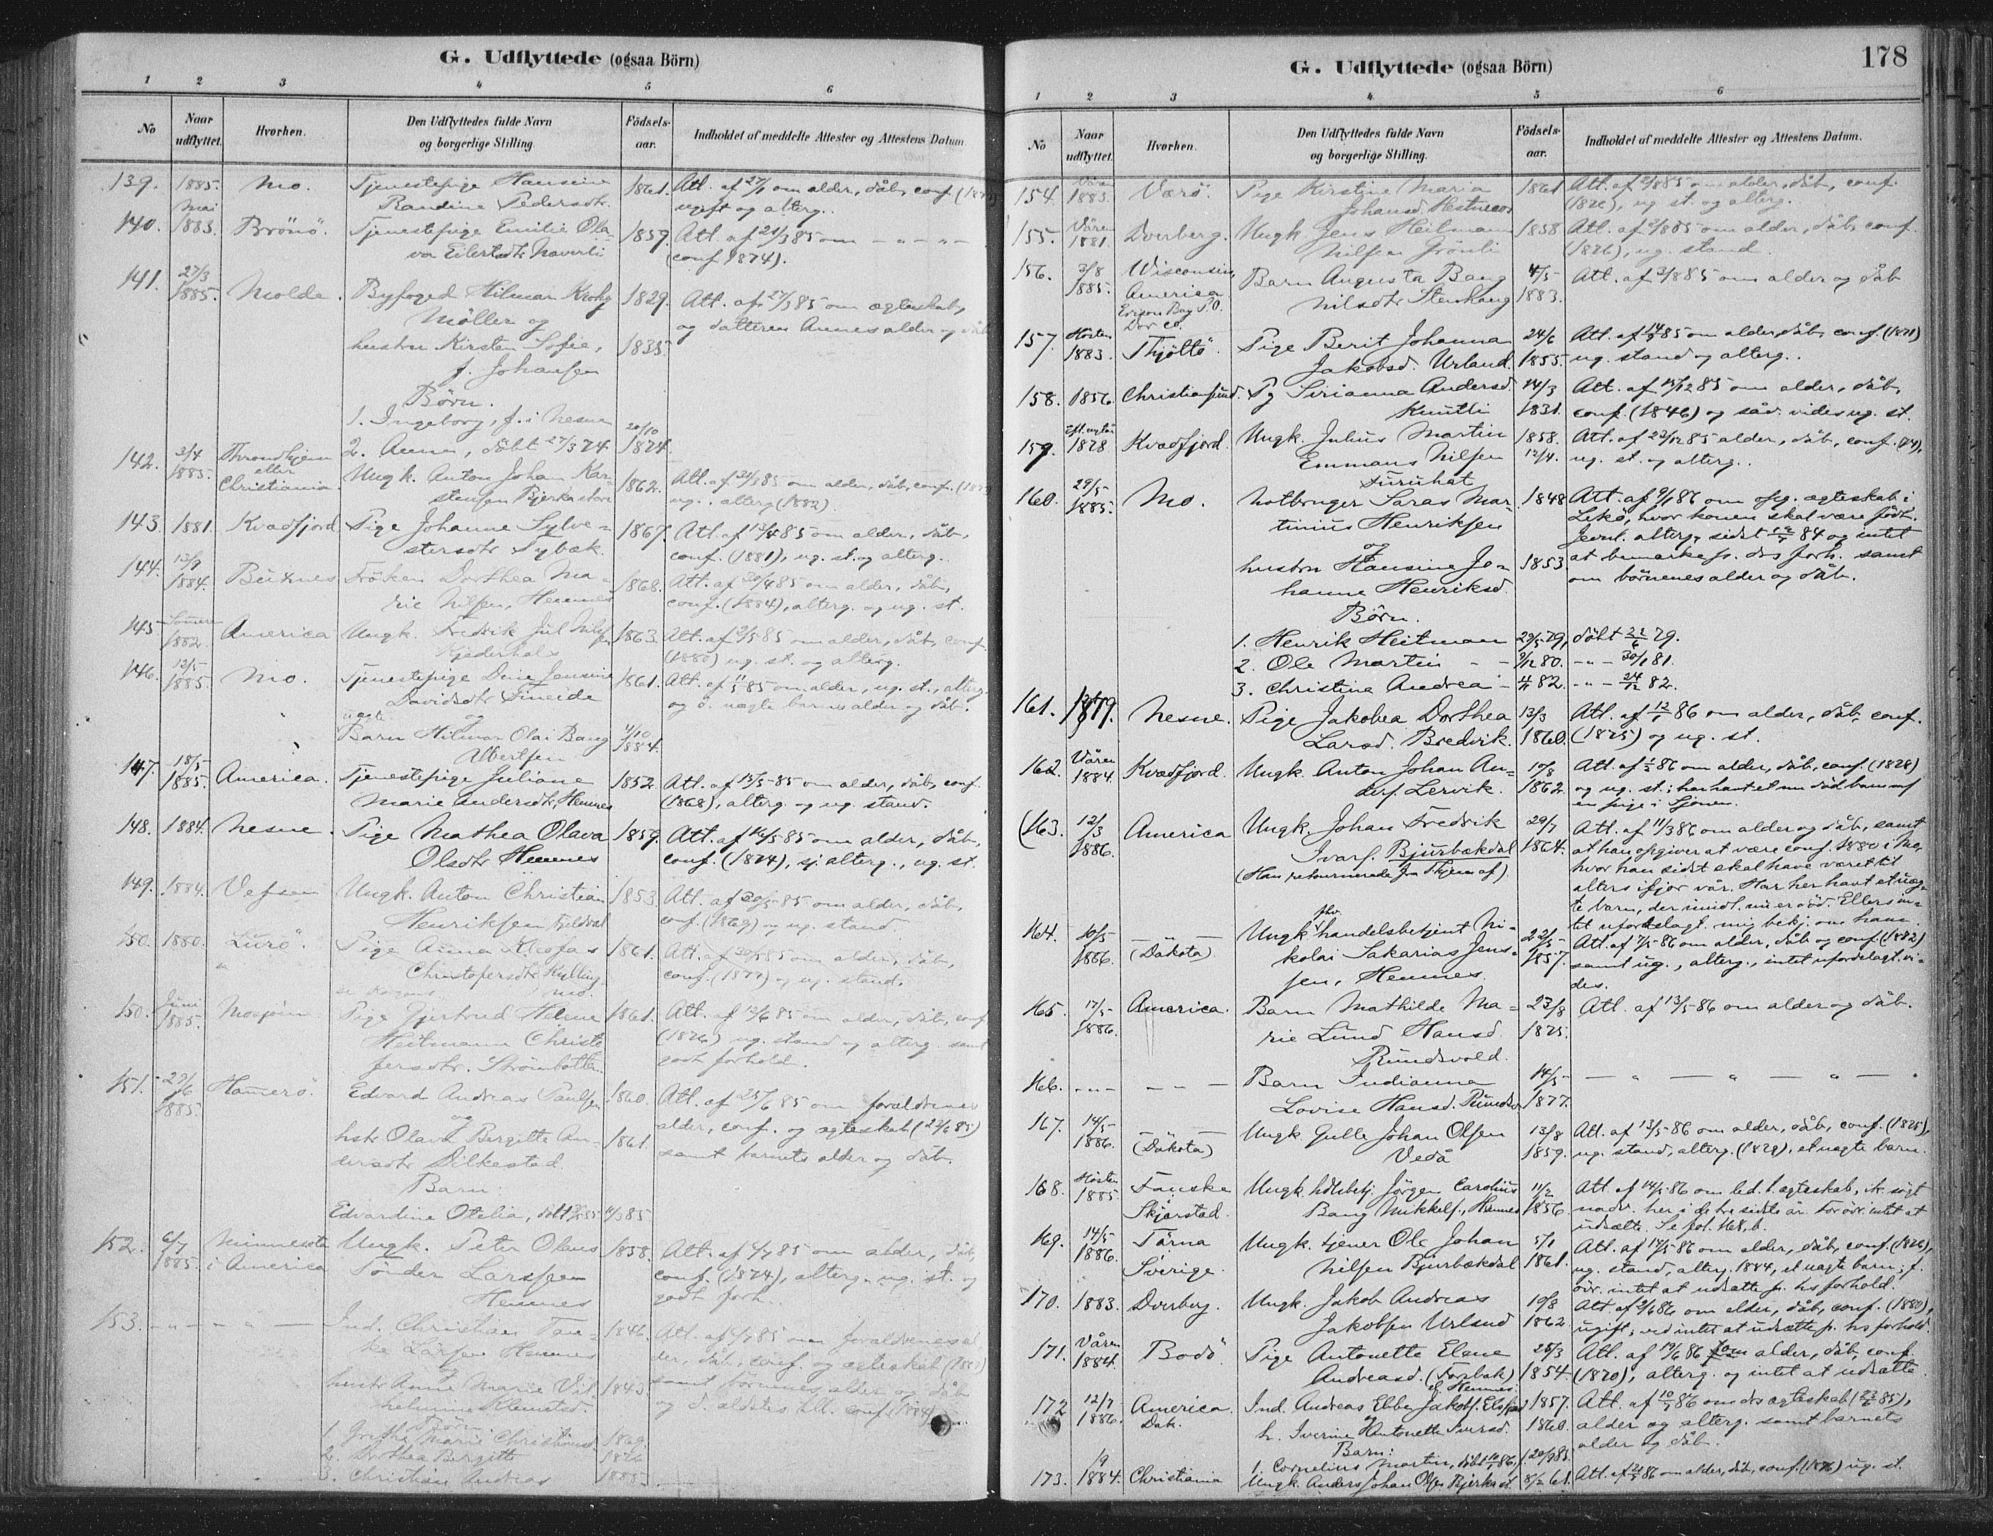 G. Udflyttede (ogsaa Börn)
1 2 3 4 5 6
No
Naar udflyttet.
Hvorhen.
Den Udflyttedes fulde Navn og borgerlige Stilling.
Födsels-aar.
Indholdet af meddelte Attester og Attestens Datum
139. 1885. Mo. Tjenestepige Hansine 1861. Att. af 27/1 om alder, dåb, conf.
Randine Pedersdtr. ugift og alterg.
140. Mai 1883. Brönö. Tjenestepige Emilie Ola- 1859. Att. af 21/3 85 om — „ — „ —
va Eilertsdtr (conf. 1874).
141. 27/3 1885. Molde. Byfoged Hilmar Krohg 1829. Att. af 27/3 85 om ægteskab,
Möller og og datteren Annes alder og dåb
hustru Kirsten Sofie, 1835.
f. Johansen
Börn.
1. Ingeborg, f. i Nesne
2. Anna, döbt 27/3 74 20/10 1874.
142. 2/4 1885. Throndhjem eller Christiania Ungk. Anton Johan Kar- 1862. Att. af 21/3 85 om alder, dåb, conf.
stensen ug., alterg. (1882).
143. 1881. Kvædfjord Pige Johanne Sylve- 1867. Att. af 13/4 85 om alder, dåb,
stersdtr Sybæk. conf. (1881), ug. st. og alterg.
144. 13/9 1884. Buxnes Fröken Dorthea Ma- 1868. Att. af 20/4 85 om alder, dåb,
rie Nilsen, Hemnes conf. (1884), alterg. og ug. st.
145. 1882. America Ungk. Fredrik Jul Nilsen 1863. Att. af 9/5 85 om alder, dåb, conf.
(1880) ug. st. og alterg.
146. 12/5 1885. Mo. Tjenestepige Dina Jensine 1861. Att. af 11/5 85 om alder, ug. st., alterg.
Davidsdtr Fineide og d. uægte barns alder og dåb.
og
uægte Barn Hilmar Olai Bang 4/10 1884.
Albertsen
147. 18/5 1885. America. Tjenestepige Juliane 1852 Att. af 15/5 85 om alder, dåb, conf.
Marie Andersdtr, Hemnes (1868), alterg. og ug. stand.
148. 1884. Nesne. Pige Mathea Olava 1859. Att. af 16/5 85 om alder, dåb,
Olsdtr Hemnes conf. (1874), ej alterg., ug. st.
149. 1884. Vefsen Ungk. Anton Christian 1853. Att. af 20/5 85 om alder, dåb,
Henriksen Fjeldal conf. (1869) og ug. stand.
150. 1880. Lurö. Pige Anna 1861. Att. af 20/5 85 om alder, dåb,
Christofersdtr conf. (1877) og ug. stand.
150. Juni 1885. Mosjöen Pige Gjertrud Helene 1861. Att. af 12/6 85 om alder, dåb, conf.
Heitmann Christo- (1876) ug. stand og alterg. samt
fersdtr. Strömbotten godt forhold.
151. 27/6 1885. Hamerö. Edvard Andreas Paulsen 1860. Att. af 25/6 85 om forældrenes
og alder, conf. og ægteskab
hstr Olava Bergitte An- 1861. samt barnets alder og dåb.
dersdtr Dilkestad.
Barn.
Edvardine Otelia,
152. 6/7 1885. Minnesota i America Ungk. Peter Olaus 1858. Att. af 4/7 85 om alder, dåb,
Tönder Larssen conf. (1874), alterg. ug. st. og
Hemnes godt forh.
153. — „ — Ind. Christian 1846. Att. af 4/7 85 om forældrenes al-
Larsen Hemnes der, dåb, conf. og ægteskab
hustr Anne Marie Vil- 1843. samt börnenes alder og dåb
helmine Klemetsd. og d. ældstes conf.
Börn
1. Marie Christiansd. 1869.
2. Dorthea Bergitte 1876
3. Christian Andreas 1885.
178
G. Udflyttede (ogsaa Börn)
1 2 3 4 5 6
No
Naar udflyttet.
Hvorhen.
Den Udflyttedes fulde Navn og borgerlige Stilling.
Födsels-aar.
Indholdet af meddelte Attester og Attestens Datum.
154. Våren 1883. Værö. Pige Kirstine Maria 1861 Att. af 2/8 85 om alder, dåb, conf.
Johansd. ug. st. og alterg.
155. Våren 1881. Dverberg. Ungk. Jens Heitmann 1858 Att. af 2/8 85 om alder, dåb, conf.
Nilsen Grönli (1876), ug. stand.
156. 3/8 1885. Wisconsin, Barn Augusta Bang 4/5 1883. Att. af 2/8 85 om alder og dåb
America Nilsdtr Stenhaug
P.O.
Dor co.
157. Hösten 1883. Thjöttö Pige Berit Johanna 24/6 1855. Att. af 14/9 85 om alder, dåb, conf. (1871)
Jakobsd. Urland. ug. stand og alterg.
158. 1856. Christiansund. Pg Sirianna Andersd. 14/3 1831. Att. af 15/12 85 om alder, dåb,
Knutli conf. (1846) og såv. vides ug. st.
159. 1878 Kvædfjord. Ungk. Julius Martin 1858. 12/4. Att. af 23/12 85 alder, dåb, conf. (74),
Emmans Nilsen ug. st. og alterg.
Furuhat
160. 29/5 1885. Mo. Notbruger Saras Mar- 1848 Att. af 9/1 86 om ofg. ægteskab i
tinius Henriksen Lekö, hvor konen skal være födt.
og alterg. sidst 84 og intet
hustru Hansine Jo- 1853 at bemærke p. ds forh. samt
hanne Henriksd. om börnenes alder og dåb.
Börn.
1. Henrik Heitman 29/5 79, döbt 22/6 79.
2. Ole Martin - - 9/12 80. - „ - 30/1 81.
3. Christine Andrea - 4/11 82. - „ - 24/12 82.
161. 1879. Nesne. Pige Jakobea Dorthea 13/3 1860. Att. af 12/1 86 om alder, dåb, conf.
Larsd. Bredvik. (1875) og ug. st.
162. Våren 1884 Kvædfjord. Ungk. Anton Johan An- 10/8 1862. Att. af 1/2 86 om alder, dåb, conf. (1878)
dersf. Lervik. og ug. st.; har havt et nu död barn m.
en pige i Sjonen.
163. 12/3 1886. America Ungk. Johan Fredrik 29/7 1864. Att. af 11/3 86 om alder og dåb, samt
Ivarf. Bjurbækdal at han opgiver at være conf. 1880 i Mo,
(Han returnerede fra Thjem af) hvor han sidst skal have været til
alters ifjor vår. Har her havt et uæg-
te barn, der imidl. nu er död. Ellers in-
tet ufordelagt. mig bekj. om ham.
164. 10/5 1886. — (Dakota) — Ungk. fhv. handelsbetjent Ni- 22/5 1857. Att. af 7/5 86 om alder, dåb og conf. (1872)
kolai Sakarias Jens- samt ug., alterg., intet ufordelagt. vi-
sen, Hemnes. des.
165. 17/5 1886. America. Barn Mathilde Ma- 23/8 1875. Att. af 13/5 86 om alder og dåb.
rie Lund Hansd.
Rundsvold.
166. - „ - — — Barn Indianna 14/5 1877. — „ — „ — „ — .
Lovise Hansd. Rundsv.
167. 14/5 1886. — (Dakota) — Ungk. Gulle Johan Olsen 13/8 1859. Att. af 13/5 86 om alder, dåb, conf. (1875),
Vedå ug. stand, alterg. (1879), et uægte barn.
168. Hösten 1885. Fauske Ungk. Jörgen Carolius 11/2 1856. Att. af 14/5 86 om led. t. ægteskab, ik. sögt
Skjerstad. Bang Mikkels., Hemnes nadv. her i de tre sidste år. For övr. intet at
udsætte. Se fol. 168, b.
169. 14/5 1886. Tärna Ungk. tjener Ole Johan 5/1 1861. Att. af 14/5 86 om alder, dåb, conf. (1876),
Sverige. Nilsen Bjurbækdal ug. stand, alterg. 1884, et uægte barn; f.
övr. intet at udsætte p. hs forhold.
170. 1883. Dverberg. Ungk. Jakob Andreas 10/8 1862 Att. af 2/6 86 om alder, dåb, conf. (1880),
Jakobsen Urland ugift; ved intet at udsætte p. hs forhold.
171. Våren 1884. Bodö. Pige Antonette Elene 25/3 1854 Att. af 19/6 86 om alder, dåb, conf.
Andreasd. (Forsbak) (1870), alterg. og intet at udsætte.
af Hemnes.
172 12/7 1886. America Dak. Ind. Andreas Ebbe Jakobs. 1857. Att. af 10/7 86 om ds ægteskab,
og
h. Iverine Antonette Iversd. 1860. alder og alterg. samt barnets
Barn: alder og dåb.
1. Cornelius Martin,
173. 1884. Christiania Ungk. Anders Johan Olsen 8/2 61. Att. af 86 om alder, dåb, conf. (1876) ug. st.